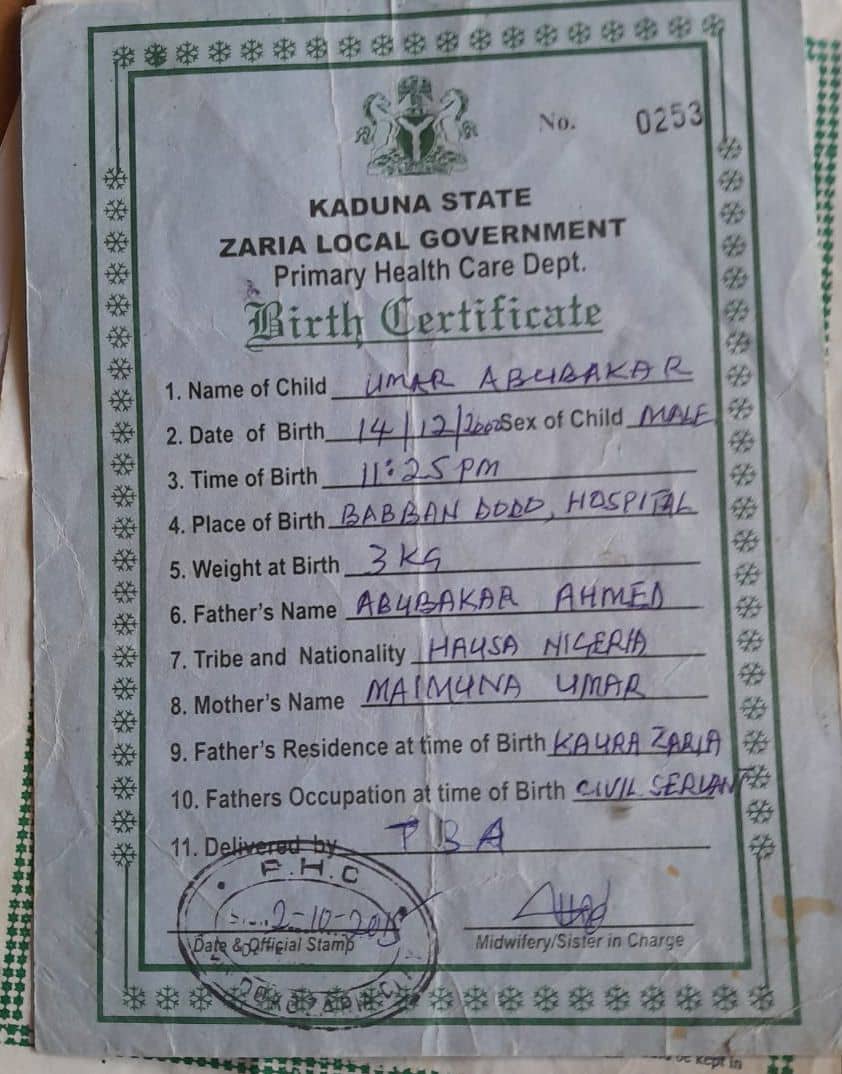 No. 0253
KADUNA STATE
ZARIA LOCAL GOVERNMENT
Primary Health Care Dept.
Birth Certificate
1. Name of Child UMAR ABUBAKAR
2. Date of Birth 14/12/2002 Sex of Child MALE
3. Time of Birth 11:25 PM
4. Place of Birth BABBAN DODO, HOSPITAL
5. Weight at Birth 3 KG
6. Father's Name ABUBAKAR AHMED
7. Tribe and Nationality HAUSA NIGERIA
8. Mother's Name MAIMUNA UMAR
9. Father's Residence at time of Birth KAURA ZARIA
10. Fathers Occupation at time of Birth CIVIL SERVANT
11. Delivered by TBA
P.H.C
2-10-2015
Date & Official Stamp
Midwifery/Sister in Charge
be kept in